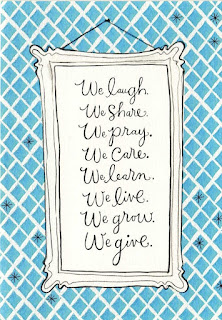 We laugh.
We share.
We pray.
We care.
We learn.
We live.
We grow.
We give.